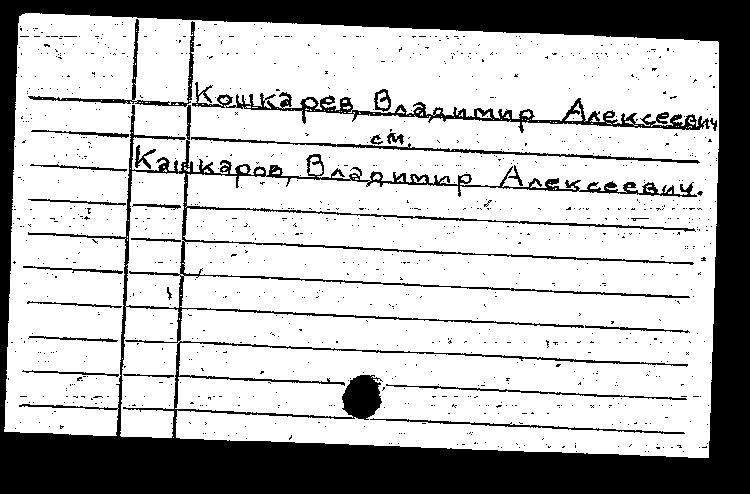 Кошкарев, Владимир Алексеевич
см.
Кашкаров, Владимир Алексеевич.